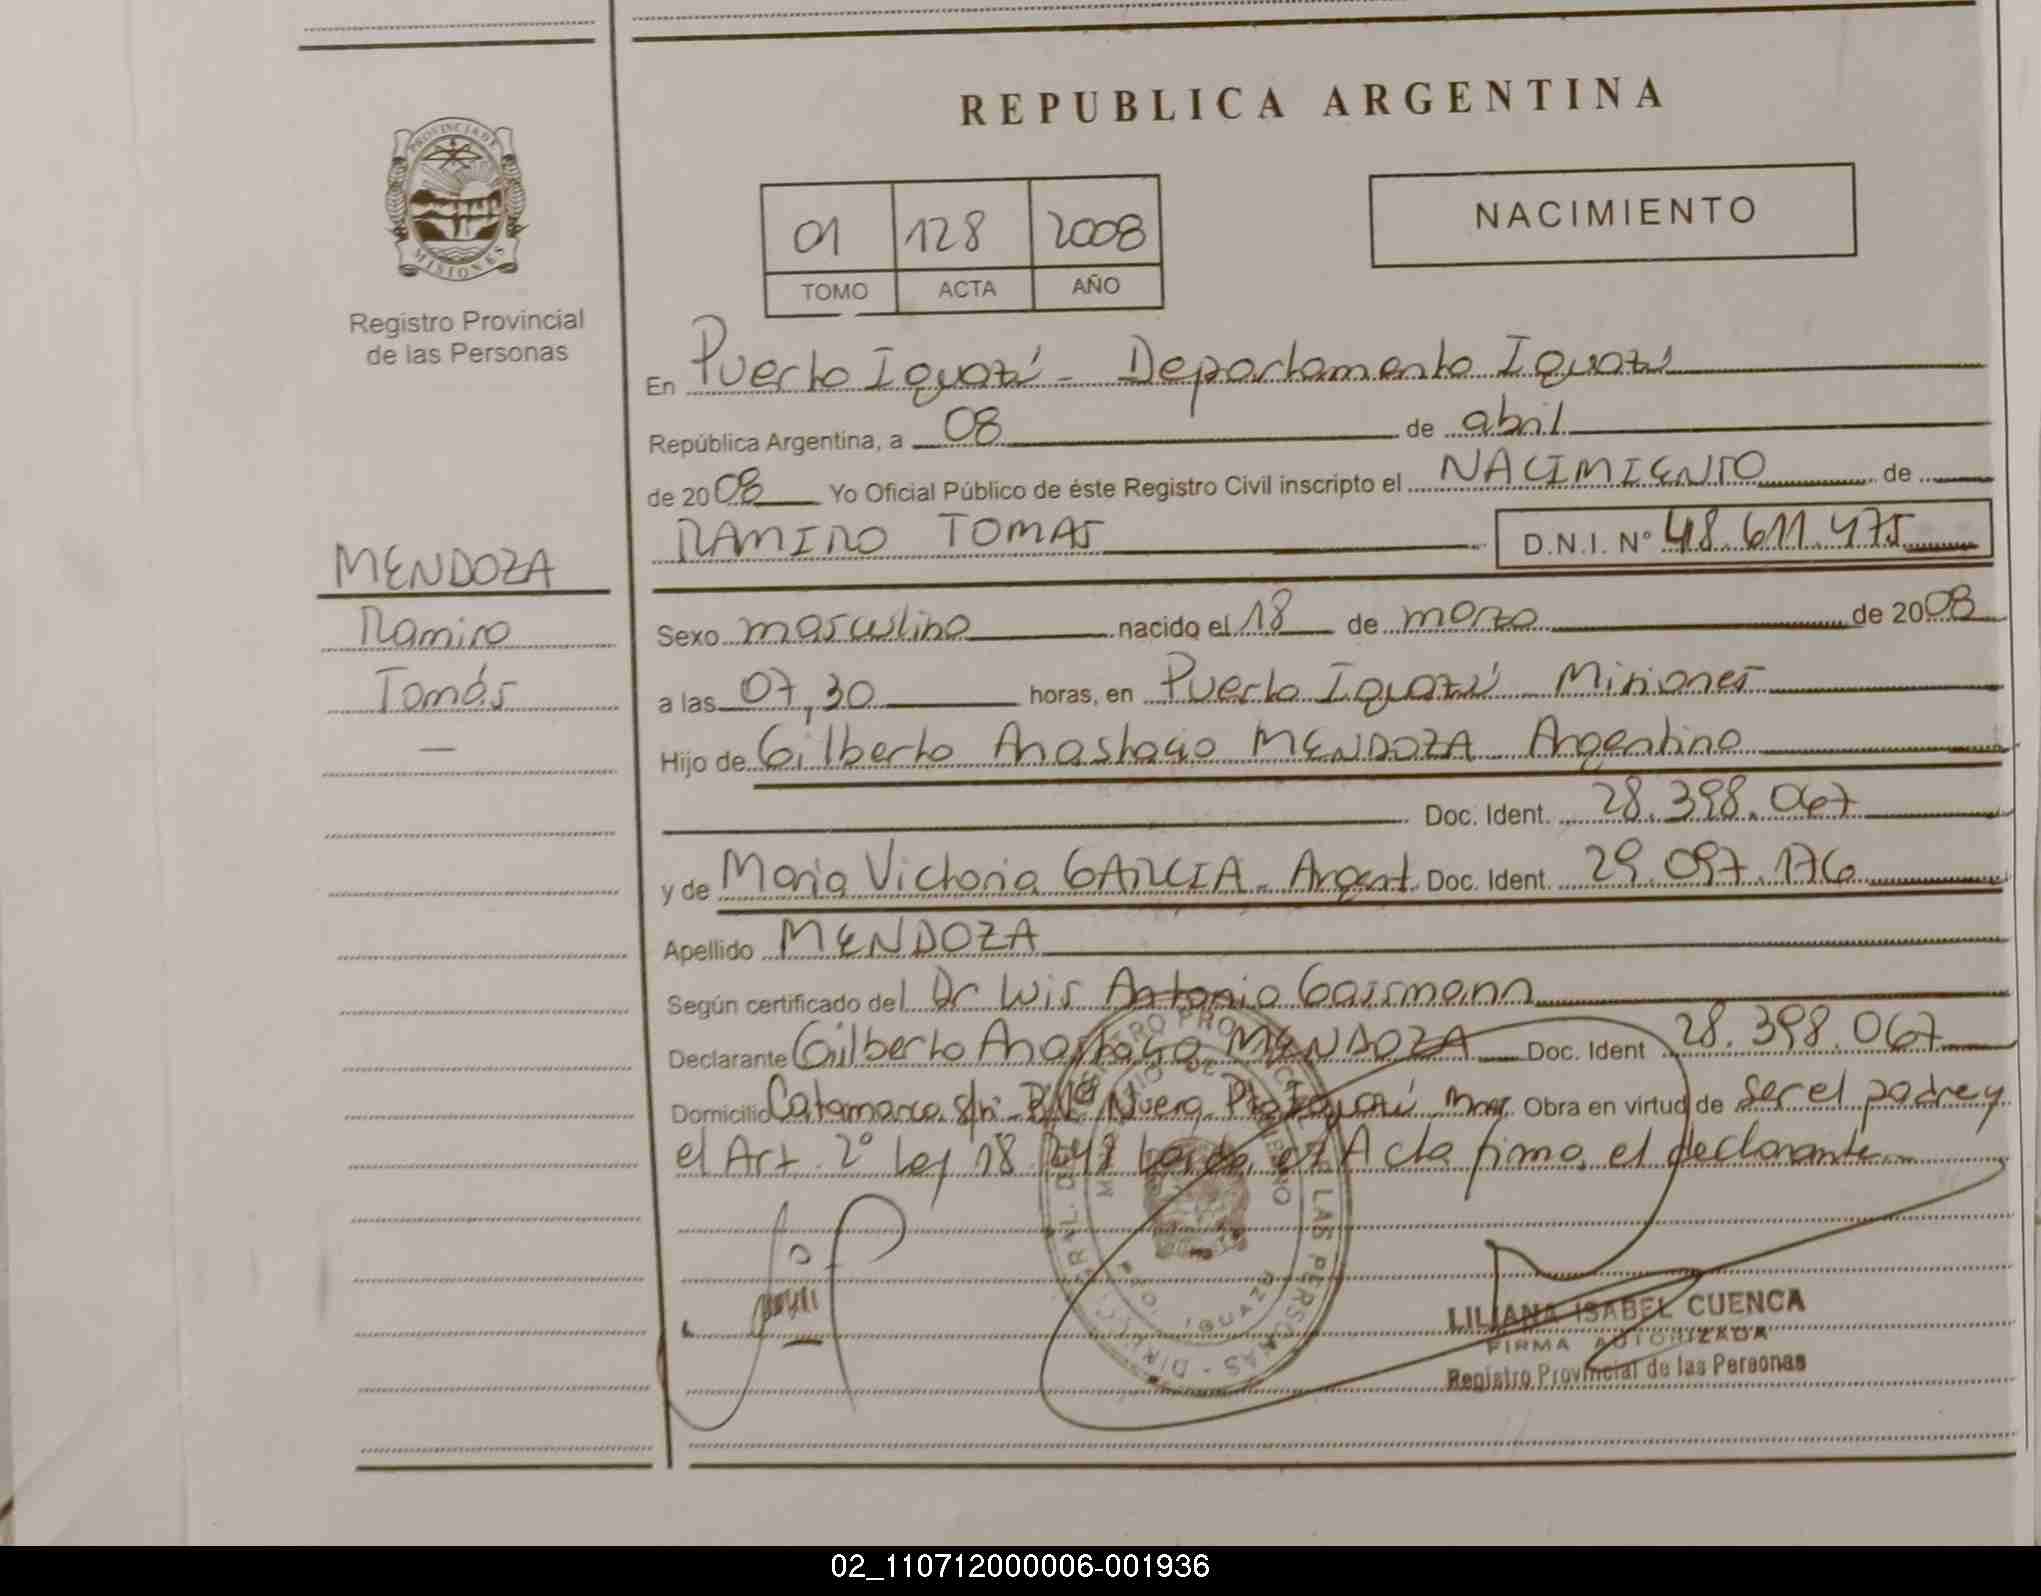 PROVINCIA DE
MISIONES
Registro Provincial
de las Personas
MENDOZA
Ramiro
Tomás
—
REPUBLICA ARGENTINA
01 128 2008
TOMO ACTA AÑO
NACIMIENTO
En Puerto Iguazú - Departamento Iguazú
República Argentina, a 08 de abril
de 2008 Yo Oficial Público de éste Registro Civil inscripto el NACIMIENTO de
RAMIRO TOMAS D.N.I. Nº 48.611.475
Sexo masculino nacido el 18 de marzo de 2008
a las 07,30 horas, en Puerto Iguazú Misiones
Hijo de Gilberto Anastacio MENDOZA Argentino
Doc. Ident. 28.398.067
y de Maria Victoria GARCIA - Argent. Doc. Ident. 29.097.176
Apellido MENDOZA
Según certificado del Dr Luis Antonio Gassmann
Declarante Gilberto Anastacio MENDOZA Doc. Ident 28.398.067
Domicilio Catamarca s/nº Bº Vª Nueva Pto Iguazú Mnes. Obra en virtud de ser el padre y
el Art. 2º Ley 18.248 Leida el Acta firma el declarante
LILIANA ISABEL CUENCA
FIRMA AUTORIZADA
Registro Provincial de las Personas
02_110712000006-001936